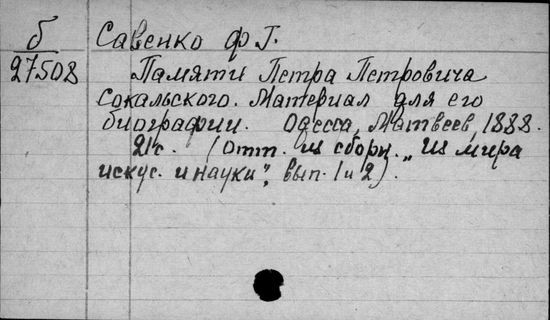 б
27508
Савенко Ф Г.
Памяти Петра Петровича
Сокальского. Материал для его
биографии. Одесса, Матвеев, 1888.
21с. (Отт. из сборн. „Из мира
искус. и науки", вып. 1 и 2).